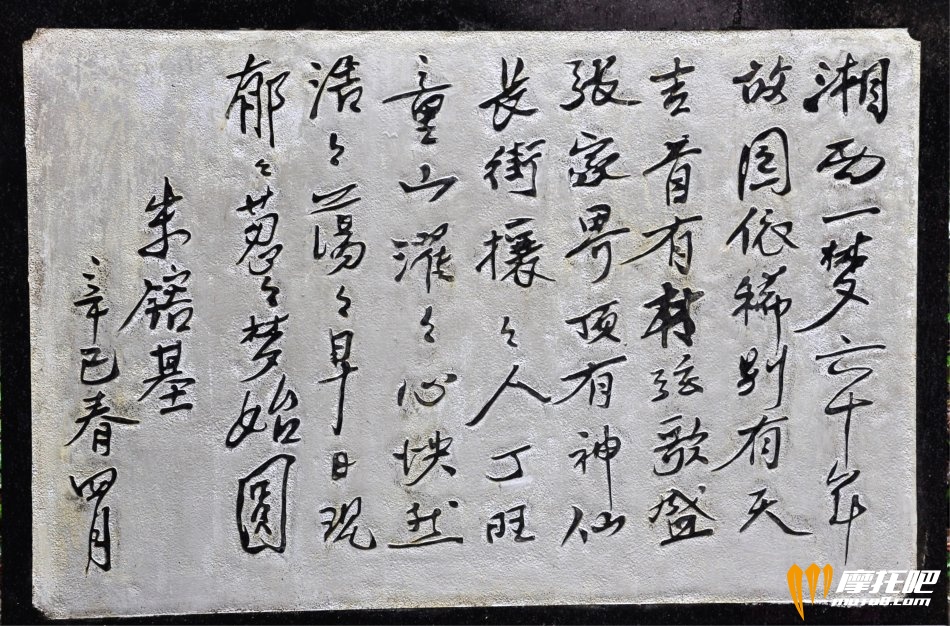 湘西一梦六十年
故园依稀别有天
吉首有材弦歌盛
张家界顶有神仙
長街攘々人丁旺
童山濯々心怏然
浩々荡々早日现
郁々葱々梦始圆
朱镕基
辛巳春四月
摩托吧
moto8.com